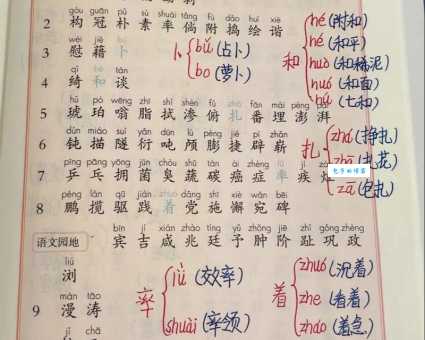 gòu guān pǔ sù shuài tǎng fù dǎo huì xié
2 构 冠 朴 素 率 倘 附 捣 绘 谐
wèi jiè
3 慰 藉 卜
卜 bǔ (占卜)
bo (萝卜)
和 hé (附和)
hè (和平)
huò (和稀泥)
huó (和面)
hú (七和)
qǐ tán
4 绮 和 谈
hǔ pò wēng zhī shì shèn fǔ fān mái péng pài
5 琥 珀 嗡 脂 拭 渗 俯 扎 番 埋 澎 湃
dùn miáo suì yǎn dūn lú péng jié pì zhǎn
6 钝 描 隧 衍 吨 颅 膨 捷 辟 崭
扎 zhá (挣扎)
(扎花)
zā (包扎)
包学的博客
pīng pāng yōng jūn chòu shū tàn ài zhèng jí
7 乒 乓 拥 菌 臭 蔬 碳 癌 症 率 疾
péng lǎn qū jiàn dǎng shī xiè wǎn bēi
8 鹏 揽 驱 践 着 党 施 懈 宛 碑
bīn jí xián zhào tíng yǔ zhǒng jiē zhǐ gǒng zhèng
语文园地 宾 吉 咸 兆 廷 予 肿 阶 趾 巩 政
liú
浏
mán tāo
9 蛮 涛
jī chā
率 lǜ (效率)
shuài (率领)
着 zhuó (沉着)
zhe (看着)
zháo (着急)